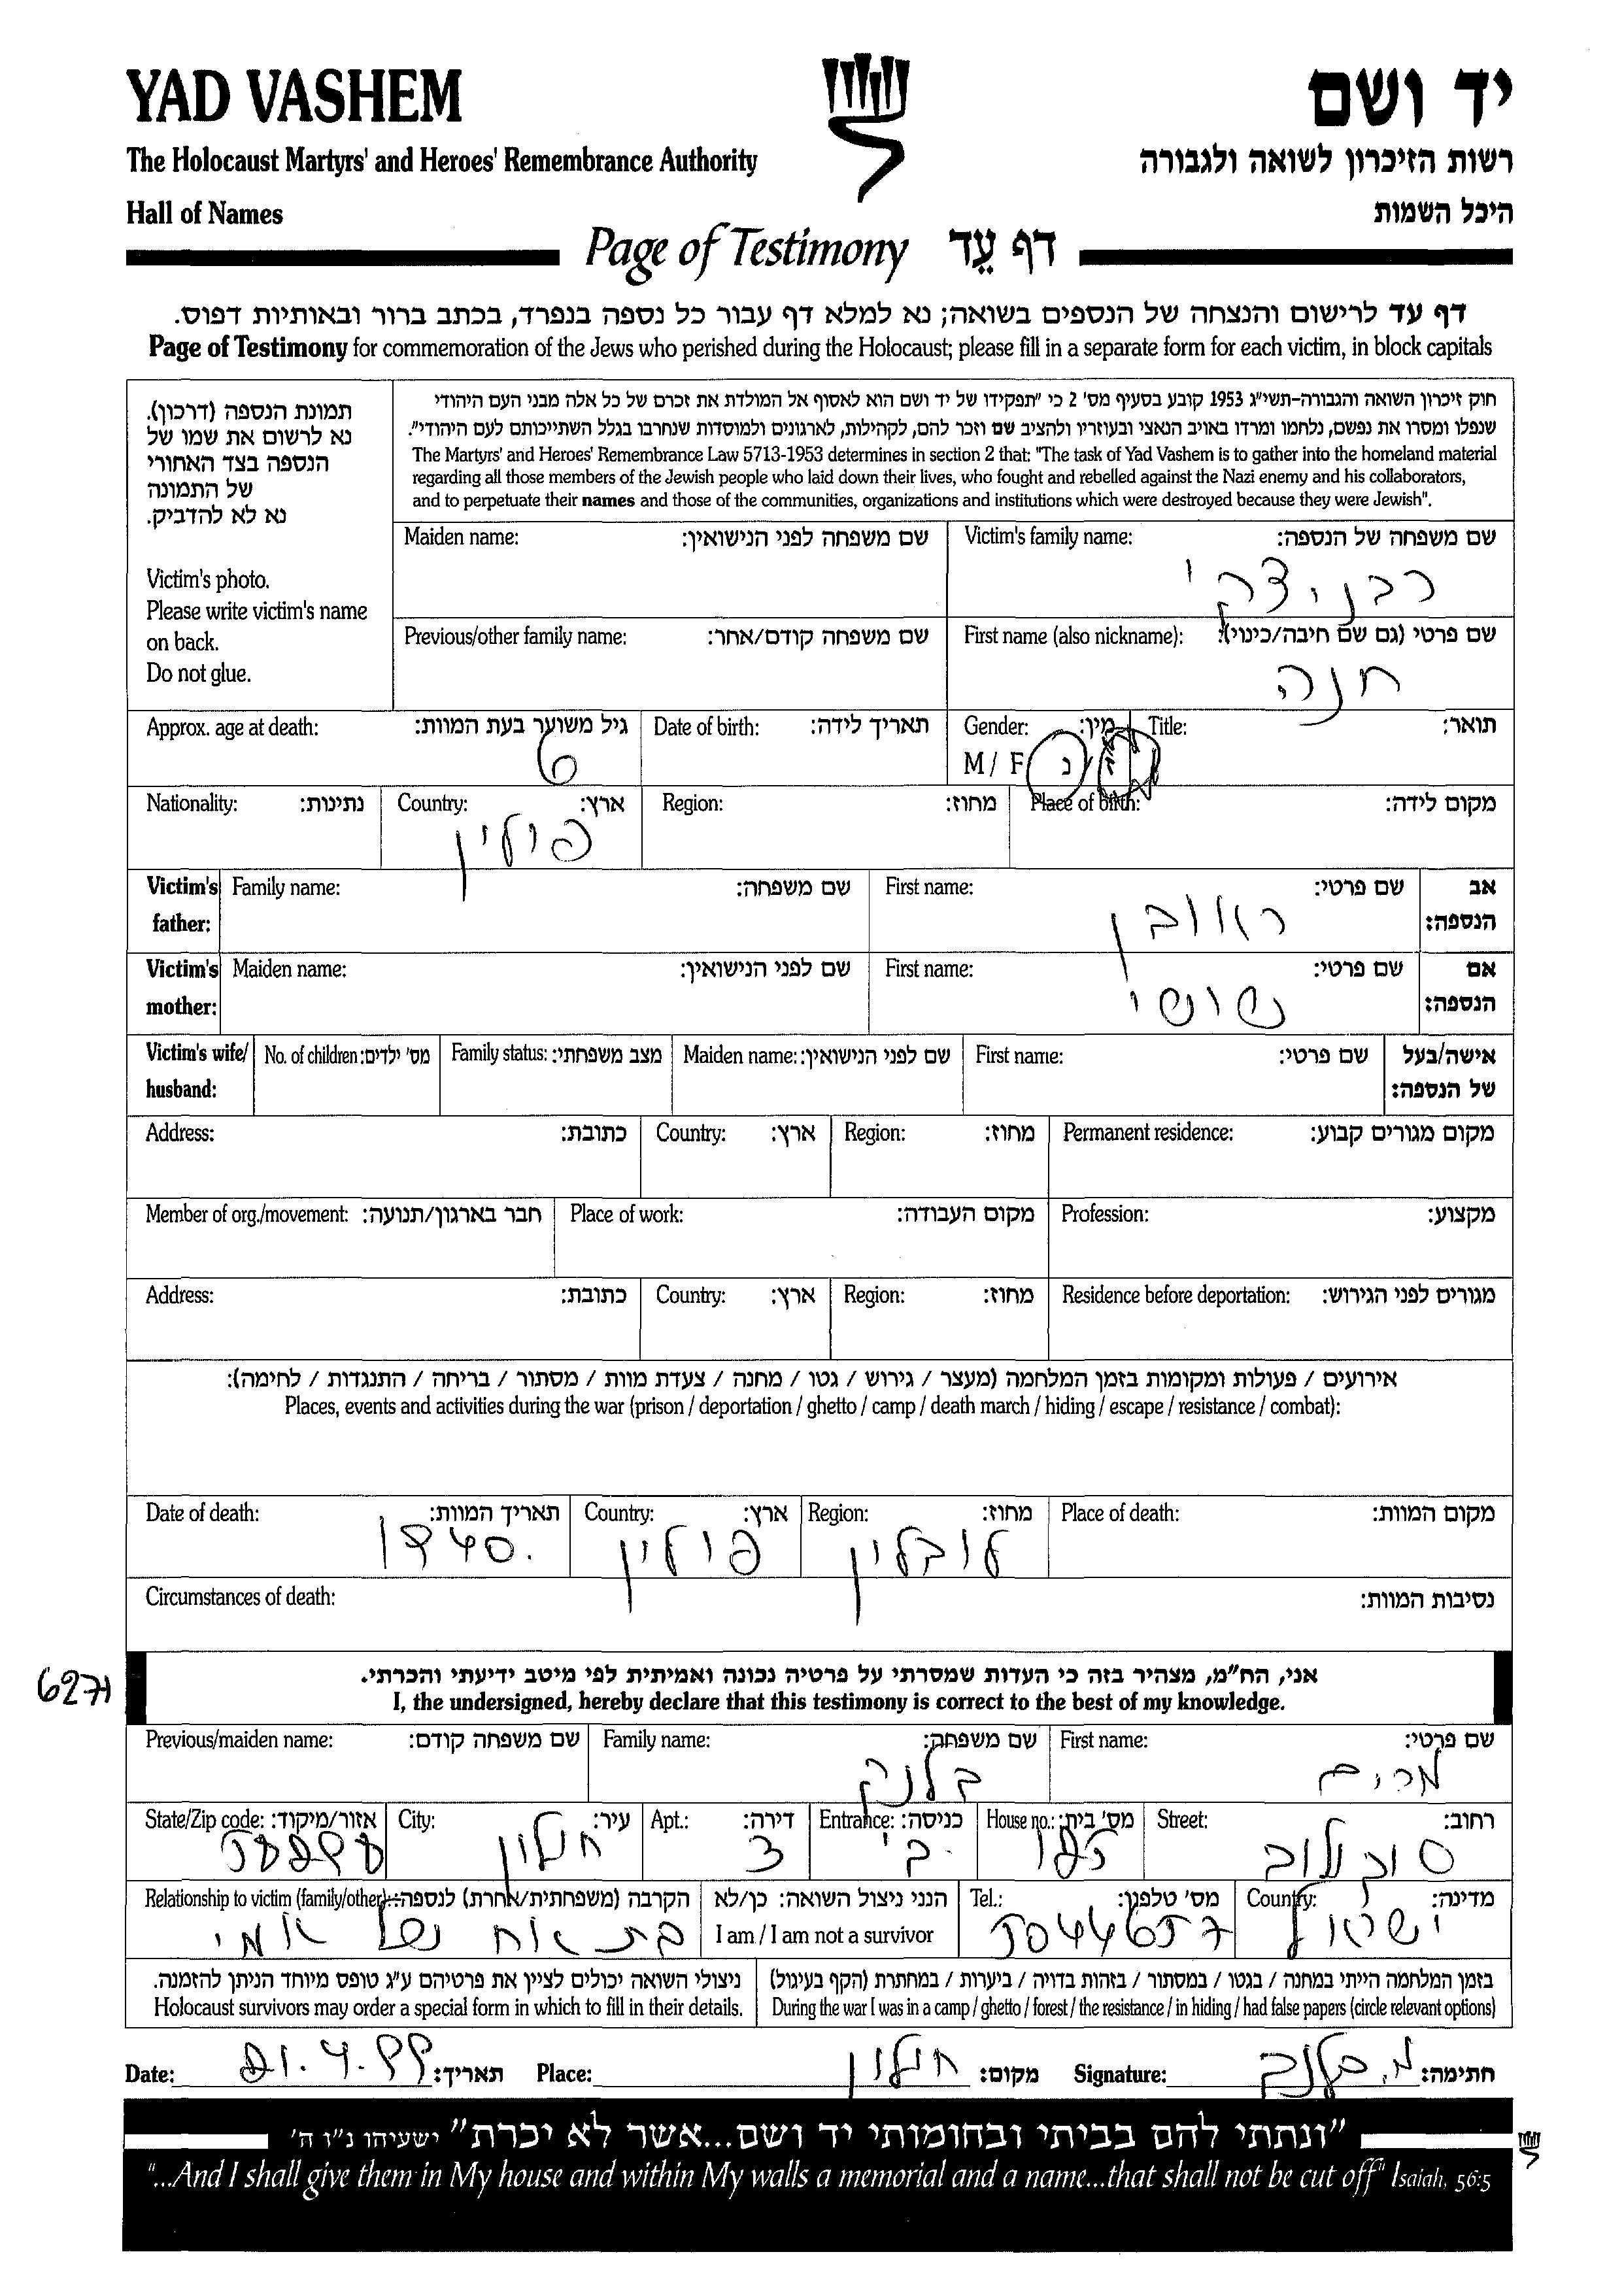 YAD VASHEM
יד ושם
The Holocaust Martyrs' and Heroes' Remembrance Authority
רשות הזיכרון לשואה ולגבורה
Hall of Names
היכל השמות
Page of Testimony דף עֵד
דף עד לרישום והנצחה של הנספים בשואה; נא למלא דף עבור כל נספה בנפרד, בכתב ברור ובאותיות דפוס.
Page of Testimony for commemoration of the Jews who perished during the Holocaust; please fill in a separate form for each victim, in block capitals
תמונת הנספה (דרכון).
נא לרשום את שמו של
הנספה בצד האחורי
של התמונה
נא לא להדביק.
Victim's photo.
Please write victim's name
on back.
Do not glue.
חוק זיכרון השואה והגבורה-תשי"ג 1953 קובע בסעיף מס' 2 כי "תפקידו של יד ושם הוא לאסוף אל המולדת את זכרם של כל אלה מבני העם היהודי
שנפלו ומסרו את נפשם, נלחמו ומרדו באויב הנאצי ובעוזריו ולהציב שם וזכר להם, לקהילות, לארגונים ולמוסדות שנחרבו בגלל השתייכותם לעם היהודי".
The Martyrs' and Heroes' Remembrance Law 5713-1953 determines in section 2 that: "The task of Yad Vashem is to gather into the homeland material
regarding all those members of the Jewish people who laid down their lives, who fought and rebelled against the Nazi enemy and his collaborators,
and to perpetuate their names and those of the communities, organizations and institutions which were destroyed because they were Jewish".
Victim's family name: שם משפחה של הנספה:
Maiden name: שם משפחה לפני הנישואין:
רבניצקי
First name (also nickname): שם פרטי (גם שם חיבה/כינוי):
Previous/other family name: שם משפחה קודם/אחר:
חנה
Title: תואר:
Gender: מין:
M / F ז / נ
Date of birth: תאריך לידה:
Approx. age at death: גיל משוער בעת המוות:
6
Place of birth: מקום לידה:
Region: מחוז:
Country: ארץ:
פולין
Nationality: נתינות:
Victim's father: אב הנספה:
First name: שם פרטי:
ראובן
Family name: שם משפחה:
Victim's mother: אם הנספה:
First name: שם פרטי:
שושי
Maiden name: שם לפני הנישואין:
Victim's wife/ husband: אישה/בעל של הנספה:
First name: שם פרטי:
Maiden name: שם לפני הנישואין:
Family status: מצב משפחתי:
No. of children: מס' ילדים:
Permanent residence: מקום מגורים קבוע:
Region: מחוז:
Country: ארץ:
Address: כתובת:
Profession: מקצוע:
Place of work: מקום העבודה:
Member of org./movement: חבר בארגון/תנועה:
Residence before deportation: מגורים לפני הגירוש:
Region: מחוז:
Country: ארץ:
Address: כתובת:
אירועים / פעולות ומקומות בזמן המלחמה (מעצר / גירוש / גטו / מחנה / צעדת מוות / מסתור / בריחה / התנגדות / לחימה):
Places, events and activities during the war (prison / deportation / ghetto / camp / death march / hiding / escape / resistance / combat):
Place of death: מקום המוות:
Region: מחוז:
לובלין
Country: ארץ:
פולין
Date of death: תאריך המוות:
1940.
Circumstances of death: נסיבות המוות:
אני, הח"מ, מצהיר בזה כי העדות שמסרתי על פרטיה נכונה ואמיתית לפי מיטב ידיעתי והכרתי.
I, the undersigned, hereby declare that this testimony is correct to the best of my knowledge.
First name: שם פרטי:
מרים
Family name: שם משפחה:
בלנק
Previous/maiden name: שם משפחה קודם:
Street: רחוב:
סוקולוב
House no.: מס' בית:
Entrance: כניסה:
ב'
Apt.: דירה:
3
City: עיר:
חולון
State/Zip code: אזור/מיקוד:
Country: מדינה:
ישראל
Tel.: מס' טלפון:
5044657
הנני ניצול השואה: כן/לא
I am / I am not a survivor
Relationship to victim (family/other): הקרבה (משפחתית/אחרת) לנספה:
בת אח של אמי
בזמן המלחמה הייתי במחנה / בגטו / במסתור / בזהות בדויה / ביערות / במחתרת (הקף בעיגול)
During the war I was in a camp / ghetto / forest / the resistance / in hiding / had false papers (circle relevant options)
ניצולי השואה יכולים לציין את פרטיהם ע"ג טופס מיוחד הניתן להזמנה.
Holocaust survivors may order a special form in which to fill in their details.
Signature: חתימה: מ. בלנק
Place: מקום: חולון
Date: תאריך: 21.4.99
"ונתתי להם בביתי ובחומותי יד ושם...אשר לא יכרת" ישעיהו נ"ו ה'
"...And I shall give them in My house and within My walls a memorial and a name...that shall not be cut off" Isaiah, 56:5